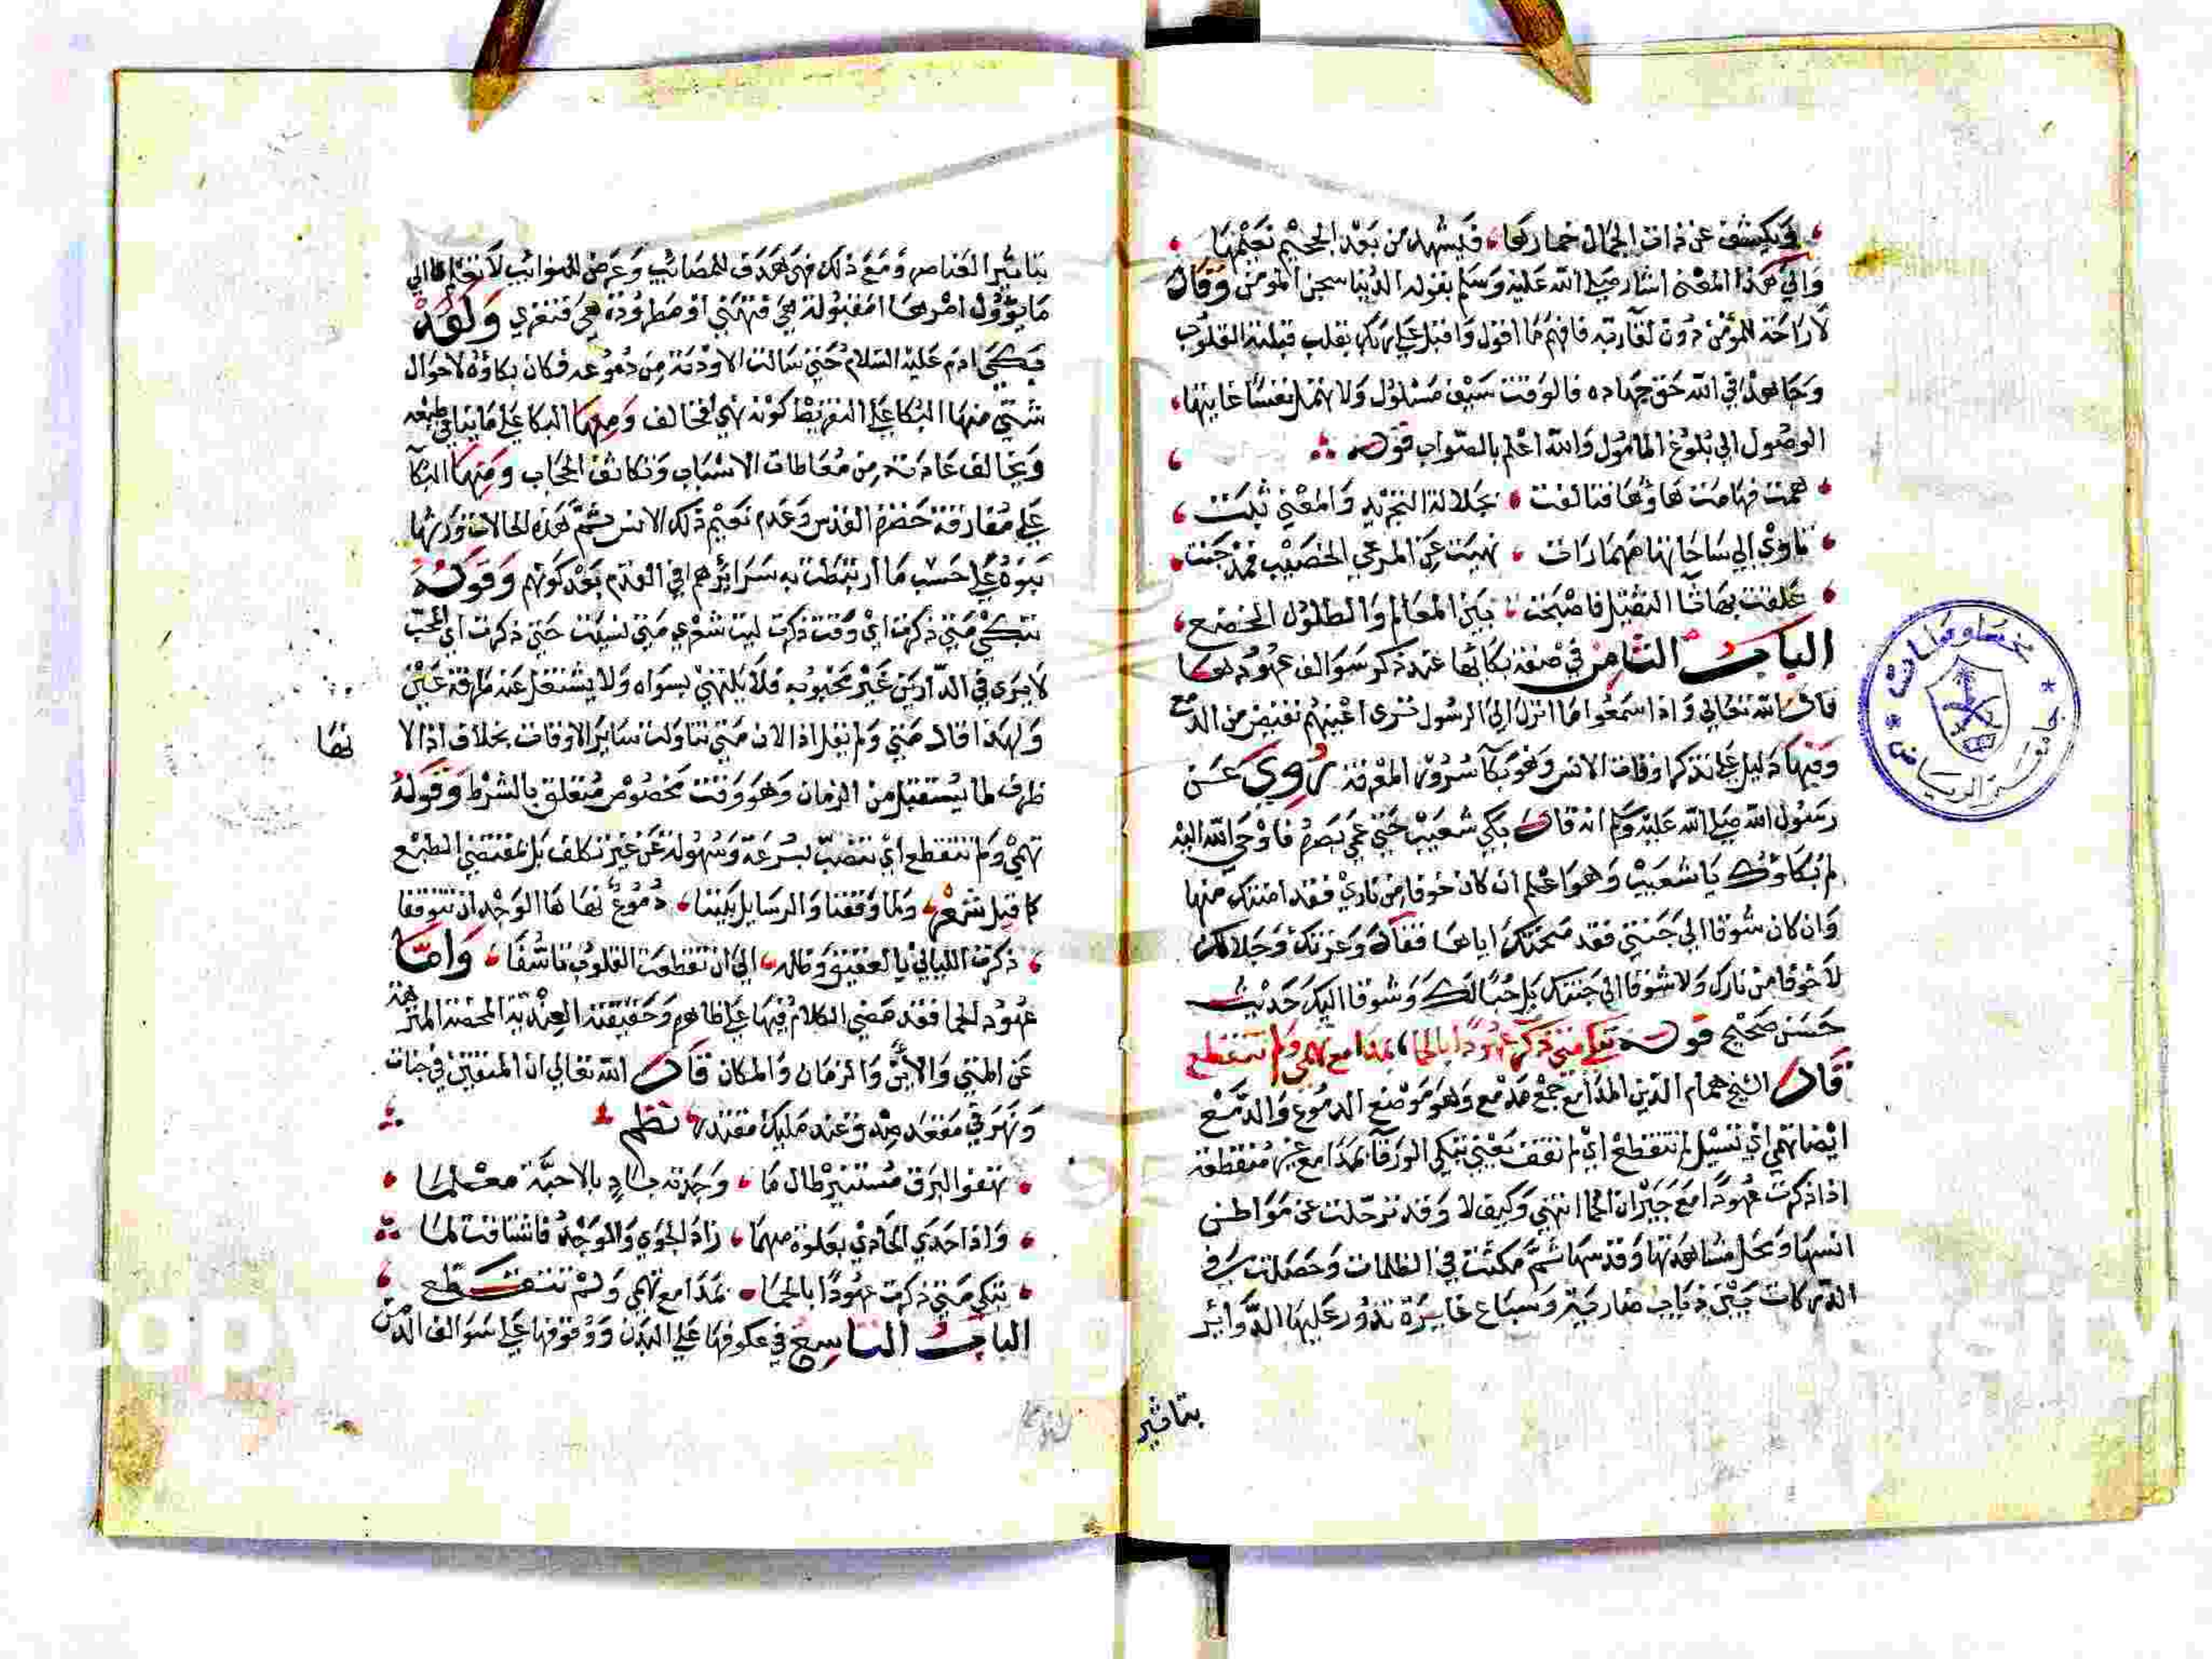 ويكشف عن ذات الجمال خمارها فيشهد من بعد الجحيم نعيمها
والي هذا المعني اشار صلي الله عليه وسلم بقوله الدنيا سجن المومن وقال
لا راحة للمؤمن دون لقآ ربه فافهم ما اقول واقبل علي ربك بقلب قبلته القلوب
وجاهد في الله حق جهاده فالوقت سيف مسلول ولا تهمل نفسا غايتها
الوصول الي بلوغ المامول والله اعلم بالصواب قوله
بجلالة التجريد والمعني ثبتت
تاوي الي ساحاتها مهما رات نهيت عن المرعي الخصيب فمذ جنت
علقت بها ثا الثقيل فاصبحت بين المعالم والطلول الخضع
الباب الثامن في صفة بكائها عند ذكر سوالف عهودها
قال الله تعالي واذا سمعوا ما انزل الي الرسول تري اعينهم تفيض من الدمع
وفيها دليل علي تذكر اوقات الانس وهو بكآ سرور المعرفة روي عن
رسول الله صلي الله عليه وسلم انه قال بكي شعيب حتي عمي بصره فاوحي الله اليه
لم بكاؤك يا شعيب وهو اعلم ان كان خوفا من ناري فقد امنتك منها
وان كان شوقا الي جنتي فقد منحتك اياها فقال وعزتك وجلالك
لا خوفا من نارك ولا شوقا الي جنتك بل حبا لك وشوقا اليك حديث
حسن صحيح قوله تبكي متي ذكرت عهودا بالحما بمدامع تهمي ولم تتقطع
قال الشيخ همام الدين المدامع جمع مدمع وهو موضع الدموع والدمع
ايضا تهمي اي تسيل لم تتقطع اي لم تقف يعني تبكي الورقآ بمدامع غير منقطعة
اذا ذكرت عهودا مع جيران الحما انتهي وكيف لا وقد ترحلت عن مواطن
انسها ومحل مشاهدتها وقدسها ثم مكثت في الظلمات وحصلت في
الدركات بين ذياب ضارية وسباع غايرة تدور عليها الدوائر
بتاثير
بتاثير العناصر ومع ذلك فهي هدف للمصائب وعرض للنوائب لا تعلم الي
ما يؤول امرها امقبولة هي فتهني او مطرودة هي فتعزي ولقد
بكي ادم عليه السلام حتي سالت الاودية من دموعه فكان بكاؤه لاحوال
شتي منها البكا علي التفريط كونه نهي فخالف ومنها البكا علي ما ينافي طبعه
ويخالف عادته من معاطات الاسباب وتكاثف الحجاب ومنها البكآ
علي مفارقة حضرة القدس وعدم نعيم ذلك الانس ثم هذه الحالات ورثها
بنوه علي حسب ما ارتبطت به سرائرهم في القدم بعد كونهم وقوله
تبكي متي ذكرت اي وقت ذكرت ليت شعري متي نسيت حتي ذكرت اي المحب
لا يري في الدارين غير محبوبه فلا يلتهي بسواه ولا يشتغل عنه طرفة عين
ولهذا قال متي ولم يقل اذا لان متي تناولت سائر الاوقات بخلاف اذا لا
نها
ظرف لما يستقبل من الزمان وهو وقت مخصوص متعلق بالشرط وقوله
تهمي ولم تتقطع اي تنصب بسرعة وسهولة عن غير تكلف بل بمقتضي الطبع
كما قيل شعر ولما وقفنا والرسايل بيننا دموع نهاها الوجد ان تتوقفا
ذكرت الليالي بالعقيق وظله الي ان تقطعت القلوب تاسفا واما
عهود الحما فقد مضي الكلام فيها علي ظاهره وحقيقته العندية المحضة المنزهة
عن المتي والاين والزمان والمكان قال الله تعالي ان المتقين في جنات
ونهر في مقعد صدق عند مليك مقتدر نظم
تهفو البرق مستنير طال ما وجدته باد بالاحبة معلما
واذا حدي الحادي بعلوة مهما زاد الجوي والوجد فاشتاقت لما
تبكي متي ذكرت عهودا بالحما بمدامع تهمي ولم تتقطع
الباب التاسع في عكوفها علي البدن ووقوفها علي سوالف الدمن